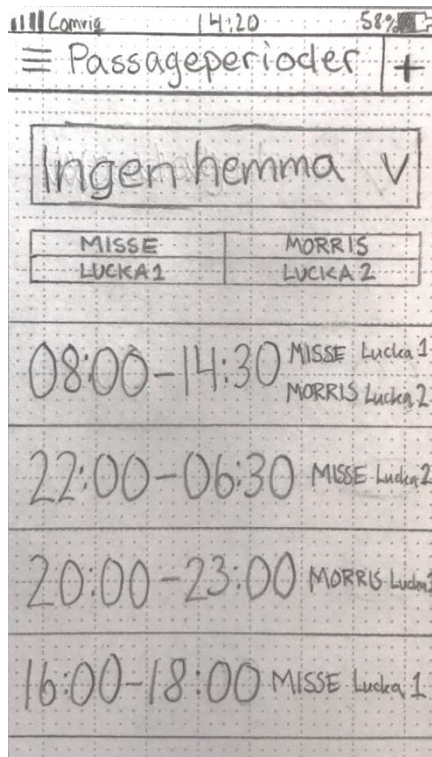 Comviq 14:20 58%
Passageperioder +
Ingen hemma V
MISSE MORRIS
LUCKA 1 LUCKA 2
08:00-14:30 MISSE Lucka 1
MORRIS Lucka 2
22:00-06:30 MISSE Lucka 2
20:00-23:00 MORRIS Lucka
16:00-18:00 MISSE Lucka 1